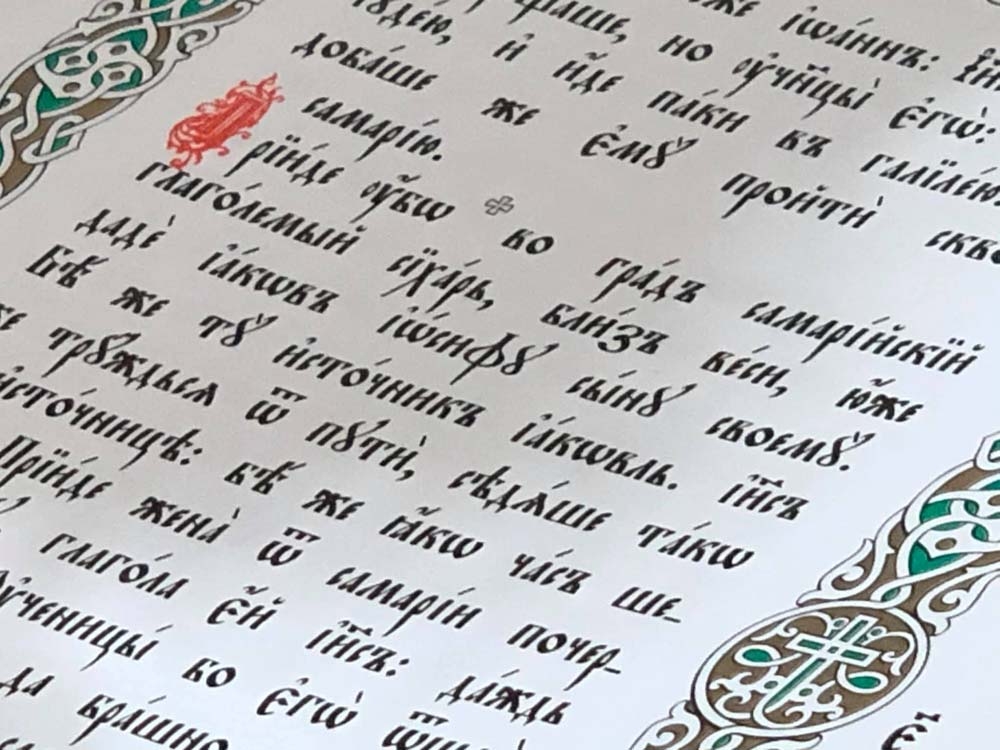 же і҆ѡа́ннъ:
но ᲂу҆чн҃цы̀ є҆гѡ̀:
і҆ꙋде́ю, и҆ и҆́де па́ки въ галїле́ю.
доба́ше же є҆мꙋ̀ пройтѝ сквоз
самарі́ю.
рїи́де ᲂу҆̀бѡ во гра́дъ самарі́йскїй
глаго́лемый сїха́рь, бли́зъ ве́си, ю҆́же
дадѐ і҆а́кѡвъ і҆ѡ́сифꙋ сы́нꙋ своемꙋ̀.
Бѣ́ же тꙋ̀ и҆сто́чникъ і҆а́кѡвль. і҆и҃съ
же трꙋ́ждьсѧ ѿ пꙋтѝ, сѣдѧ́ше та́кѡ
и҆сто́чницѣ: бѣ́ же ꙗ҆́кѡ ча́съ ше_
Прїи́де жена̀ ѿ самарі́и поче́р_
глаго́ла є҆́й і҆и҃съ: да́ждь
ᲂу҆ченицы́ бо є҆гѡ̀
да бра́шно